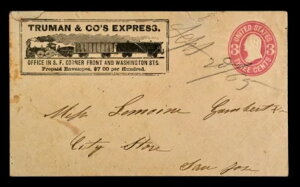 TRUMAN & CO'S EXPRESS.
OFFICE IN S. F. CORNER FRONT AND WASHINGTON STS.
Prepaid Envelopes, $7 00 per Hundred.
UNITED STATES
3 3
THREE CENTS
Sept 20
65
Miss Lomaine
City Store
San Jose